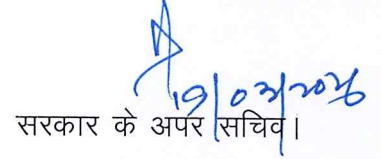 19/03/2026
सरकार के अपर सचिव।